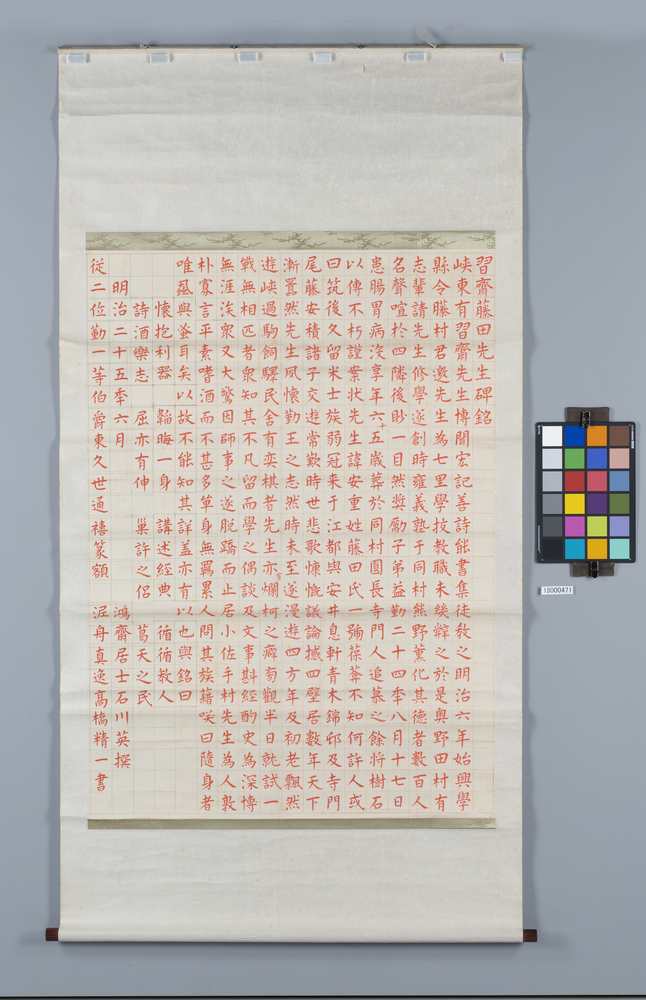 習齋藤田先生碑銘
峽東有習齋先生博聞宏記善詩能書集徒教之明治六年始興學
縣令藤村君邀先生為七里學技教職未幾辭之於是奧野田村有
志輩請先生修學遂創時雍義塾于同村熊野薰化其德者數百人
名聲喧於四隣後眇一目然獎勵子弟益勤二十四季八月十七日
患腸胃病沒享年六十五歲葬於同村圓長寺門人追慕之餘將樹石
以傳不朽謹案狀先生諱安重姓藤田氏一號葆菶不知何許人或
曰筑後久留米士族弱冠来于江都與安井息軒青木錦邨及寺門
尾藤安積諸子交遊常歎時世悲歌慷慨議論撼四壁居數年天下
漸囂然先生夙懷勤王之志然時未至遂漫遊四方年及初老飄然
遊峽過駒飼驛民舍有奕棋者先生亦爛柯之癖旁觀半日就試一
戰無相匹者衆知其不凡留而學之偶談及文事斟經酌史為深博
無涯涘衆又大驚因師事之遂脫蹻而止居小佐手村先生為人敦
朴寡言平素嗜酒而不甚多箪身無羈累人問其族籍咲曰隨身者
唯蝨與蚤耳矣以故不能知其詳盖亦有以也與銘曰
懷抱利器 韜晦一身 講述經典 循循教人
詩酒樂志 屈亦有伸 巢許之侶 葛天之民
明治二十五季六月 鴻齋居士石川英撰
從二位勤一等伯爵東久世通禧篆額 泥舟真逸髙橋精一書
18000471